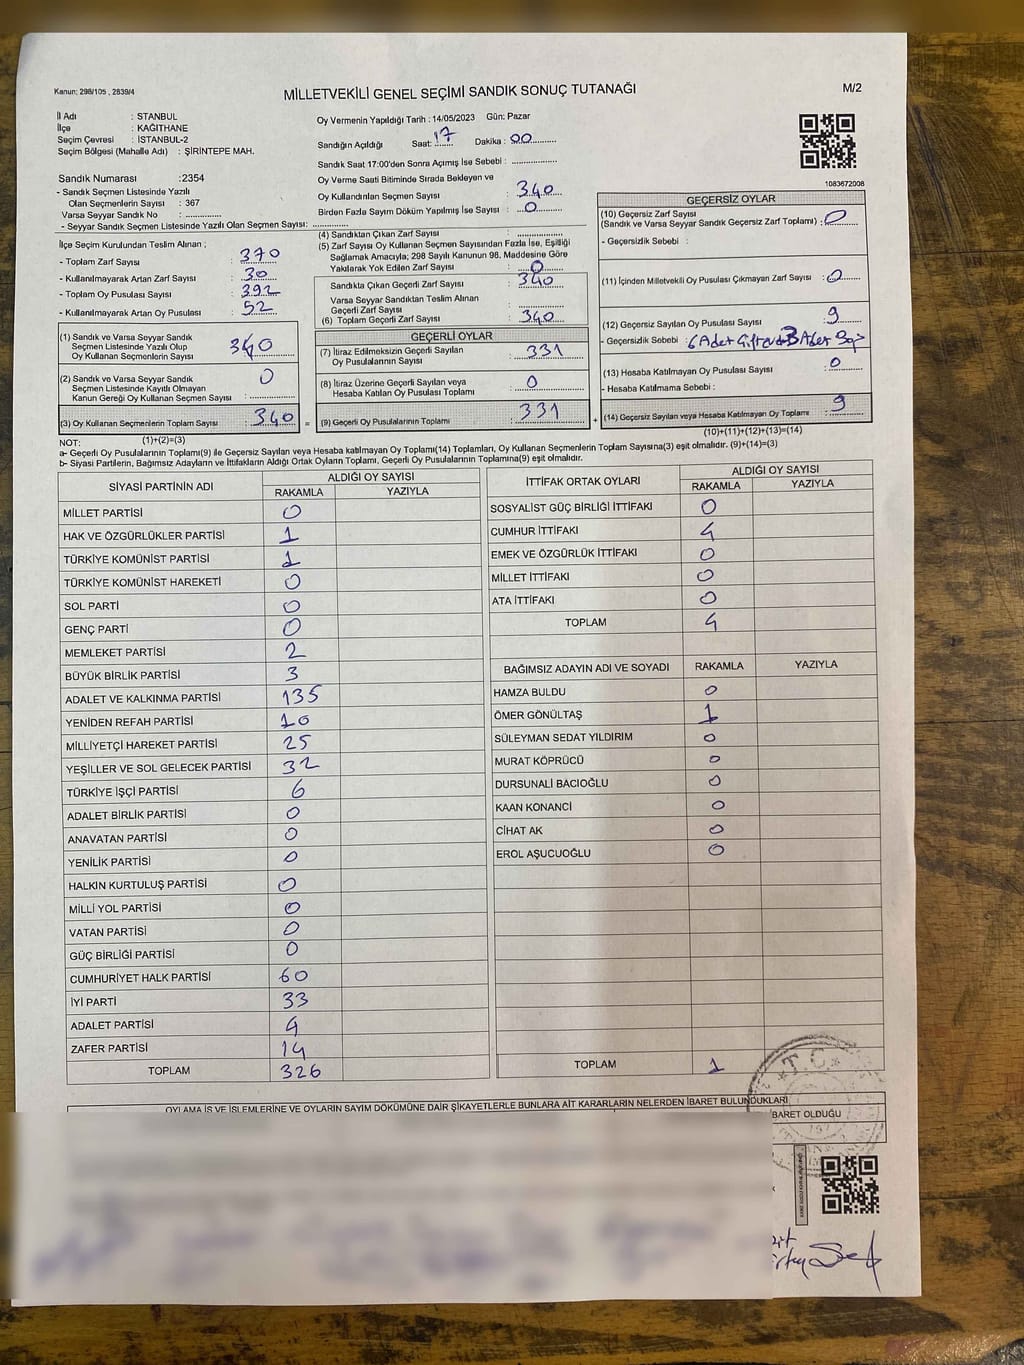 Kanun: 298/105 , 2839/4
MİLLETVEKİLİ GENEL SEÇİMİ SANDIK SONUÇ TUTANAĞI
M/2
İl Adı : STANBUL
İlçe : KAĞITHANE
Seçim Çevresi : İSTANBUL-2
Seçim Bölgesi (Mahalle Adı) : ŞİRİNTEPE MAH.
Oy Vermenin Yapıldığı Tarih : 14/05/2023 Gün: Pazar
Sandığın Açıldığı Saat: 17 Dakika : 00
Sandık Saat 17:00'den Sonra Açımış İse Sebebi :
Oy Verme Saati Bitiminde Sırada Bekleyen ve
Oy Kullandırılan Seçmen Sayısı : 340
Birden Fazla Sayım Döküm Yapılmış İse Sayısı : 0
1083672008
Sandık Numarası :2354
- Sandık Seçmen Listesinde Yazılı
Olan Seçmenlerin Sayısı : 367
Varsa Seyyar Sandık No :
- Seyyar Sandık Seçmen Listesinde Yazılı Olan Seçmen Sayısı:
İlçe Seçim Kurulundan Teslim Alınan ;
- Toplam Zarf Sayısı : 370
- Kullanılmayarak Artan Zarf Sayısı : 30
- Toplam Oy Pusulası Sayısı : 392
- Kullanılmayarak Artan Oy Pusulası : 52
(1) Sandık ve Varsa Seyyar Sandık
Seçmen Listesinde Yazılı Olup
Oy Kullanan Seçmenlerin Sayısı : 340
(2) Sandık ve Varsa Seyyar Sandık
Seçmen Listesinde Kayıtlı Olmayan
Kanun Gereği Oy Kullanan Seçmen Sayısı : 0
(3) Oy Kullanan Seçmenlerin Toplam Sayısı : 340
(1)+(2)=(3)
(4) Sandıktan Çıkan Zarf Sayısı :
(5) Zarf Sayısı Oy Kullanan Seçmen Sayısından Fazla İse, Eşitliği
Sağlamak Amacıyla; 298 Sayılı Kanunun 98. Maddesine Göre
Yakılarak Yok Edilen Zarf Sayısı : 0
Sandıkta Çıkan Geçerli Zarf Sayısı : 340
Varsa Seyyar Sandıktan Teslim Alınan
Geçerli Zarf Sayısı :
(6) Toplam Geçerli Zarf Sayısı : 340
GEÇERLİ OYLAR
(7) İtiraz Edilmeksizin Geçerli Sayılan
Oy Pusulalarının Sayısı : 331
(8) İtiraz Üzerine Geçerli Sayılan veya
Hesaba Katılan Oy Pusulası Toplamı : 0
(9) Geçerli Oy Pusulalarının Toplamı : 331
GEÇERSİZ OYLAR
(10) Geçersiz Zarf Sayısı
(Sandık ve Varsa Seyyar Sandık Geçersiz Zarf Toplamı) : 0
- Geçersizlik Sebebi :
(11) İçinden Milletvekili Oy Pusulası Çıkmayan Zarf Sayısı : 0
(12) Geçersiz Sayılan Oy Pusulası Sayısı : 9
- Geçersizlik Sebebi : 6 Adet 3 Adet
(13) Hesaba Katılmayan Oy Pusulası Sayısı : 0
- Hesaba Katılmama Sebebi :
(14) Geçersiz Sayılan veya Hesaba Katılmayan Oy Toplamı : 9
(10)+(11)+(12)+(13)=(14)
NOT:
a- Geçerli Oy Pusulalarının Toplamı(9) ile Geçersiz Sayılan veya Hesaba katılmayan Oy Toplamı(14) Toplamları, Oy Kullanan Seçmenlerin Toplam Sayısına(3) eşit olmalıdır. (9)+(14)=(3)
b- Siyasi Partilerin, Bağımsız Adayların ve İttifakların Aldığı Ortak Oyların Toplamı, Geçerli Oy Pusulalarının Toplamına(9) eşit olmalıdır.
SİYASİ PARTİNİN ADI ALDIĞI OY SAYISI
RAKAMLA YAZIYLA
MİLLET PARTİSİ 0
HAK VE ÖZGÜRLÜKLER PARTİSİ 1
TÜRKİYE KOMÜNİST PARTİSİ 1
TÜRKİYE KOMÜNİST HAREKETİ 0
SOL PARTİ 0
GENÇ PARTİ 0
MEMLEKET PARTİSİ 2
BÜYÜK BİRLİK PARTİSİ 3
ADALET VE KALKINMA PARTİSİ 135
YENİDEN REFAH PARTİSİ 10
MİLLİYETÇİ HAREKET PARTİSİ 25
YEŞİLLER VE SOL GELECEK PARTİSİ 32
TÜRKİYE İŞÇİ PARTİSİ 6
ADALET BİRLİK PARTİSİ 0
ANAVATAN PARTİSİ 0
YENİLİK PARTİSİ 0
HALKIN KURTULUŞ PARTİSİ 0
MİLLİ YOL PARTİSİ 0
VATAN PARTİSİ 0
GÜÇ BİRLİĞİ PARTİSİ 0
CUMHURİYET HALK PARTİSİ 60
İYİ PARTİ 33
ADALET PARTİSİ 4
ZAFER PARTİSİ 14
TOPLAM 326
İTTİFAK ORTAK OYLARI ALDIĞI OY SAYISI
RAKAMLA YAZIYLA
SOSYALİST GÜÇ BİRLİĞİ İTTİFAKI 0
CUMHUR İTTİFAKI 4
EMEK VE ÖZGÜRLÜK İTTİFAKI 0
MİLLET İTTİFAKI 0
ATA İTTİFAKI 0
TOPLAM 4
BAĞIMSIZ ADAYIN ADI VE SOYADI RAKAMLA YAZIYLA
HAMZA BULDU 0
ÖMER GÖNÜLTAŞ 1
SÜLEYMAN SEDAT YILDIRIM 0
MURAT KÖPRÜCÜ 0
DURSUNALİ BACIOĞLU 0
KAAN KONANCİ 0
CİHAT AK 0
EROL AŞUCUOĞLU 0
TOPLAM 1
T.C.
OYLAMA İŞ VE İŞLEMLERİNE VE OYLARIN SAYIM DÖKÜMÜNE DAİR ŞİKAYETLERLE BUNLARA AİT KARARLARIN NELERDEN İBARET BULUNDUKLARI
BARET OLDUĞU